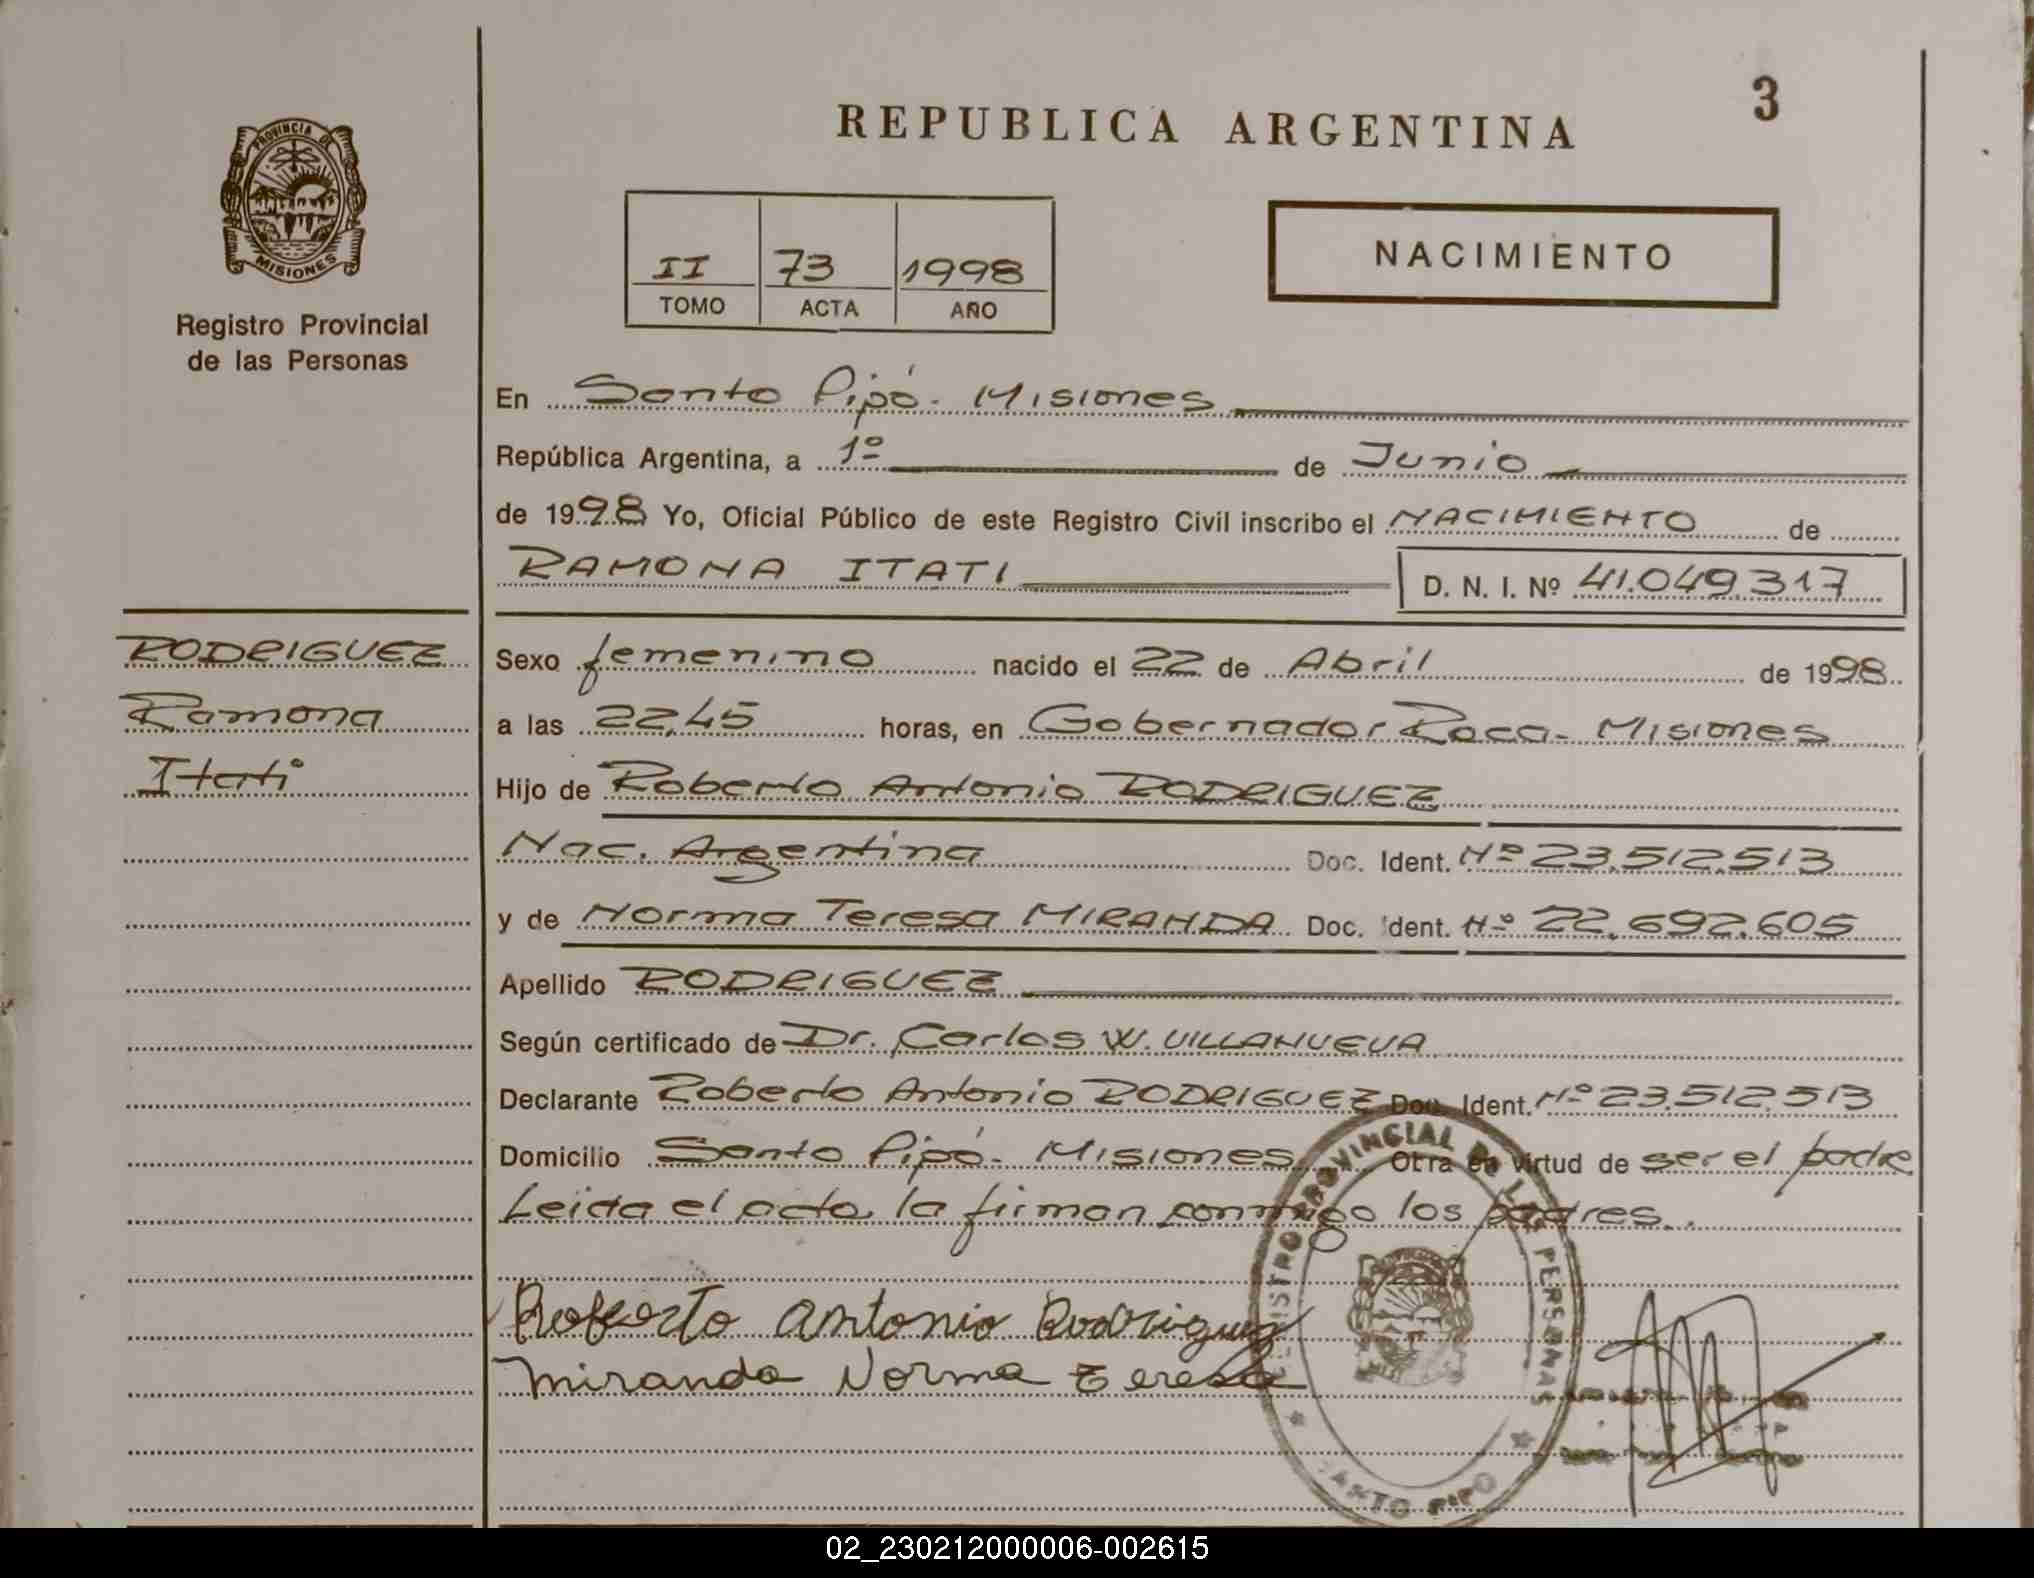 3
REPUBLICA ARGENTINA
PROVINCIA DE
MISIONES
Registro Provincial
de las Personas
II 73 1998
TOMO ACTA AÑO
NACIMIENTO
En Santo Pipó - Misiones
República Argentina, a 1º de Junio
de 1998 Yo, Oficial Público de este Registro Civil inscribo el NACIMIENTO de
RAMONA ITATI D. N. I. Nº 41.049.317
RODRIGUEZ
Ramona
Itati
Sexo femenino nacido el 22 de Abril de 1998
a las 22,45 horas, en Gobernador Roca - Misiones
Hijo de Roberto Antonio RODRIGUEZ
Nac. Argentina Doc. Ident. Nº 23.512.513
y de Norma Teresa MIRANDA Doc. Ident. Nº 22.692.605
Apellido RODRIGUEZ
Según certificado de Dr. Carlos W. VILLANUEVA
Declarante Roberto Antonio RODRIGUEZ Doc. Ident. Nº 23.512.513
Domicilio Santo Pipó - Misiones Otra en virtud de ser el padre
Leida el acta, la firman conmigo los padres.
Roberto Antonio Rodriguez
Miranda Norma Teresa
REGISTRO PROVINCIAL DE LAS PERSONAS
SANTO PIPO
02_230212000006-002615